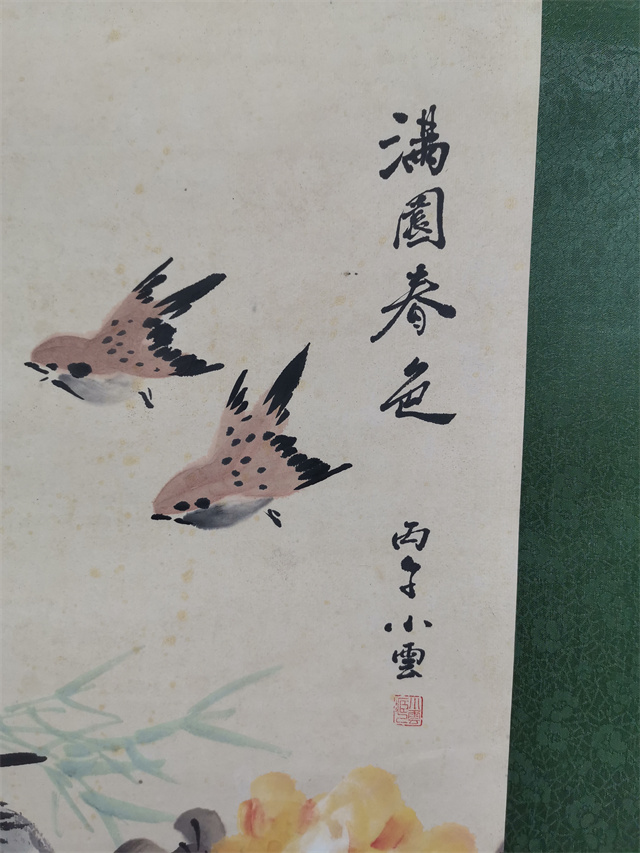 滿園春色
丙午小雲